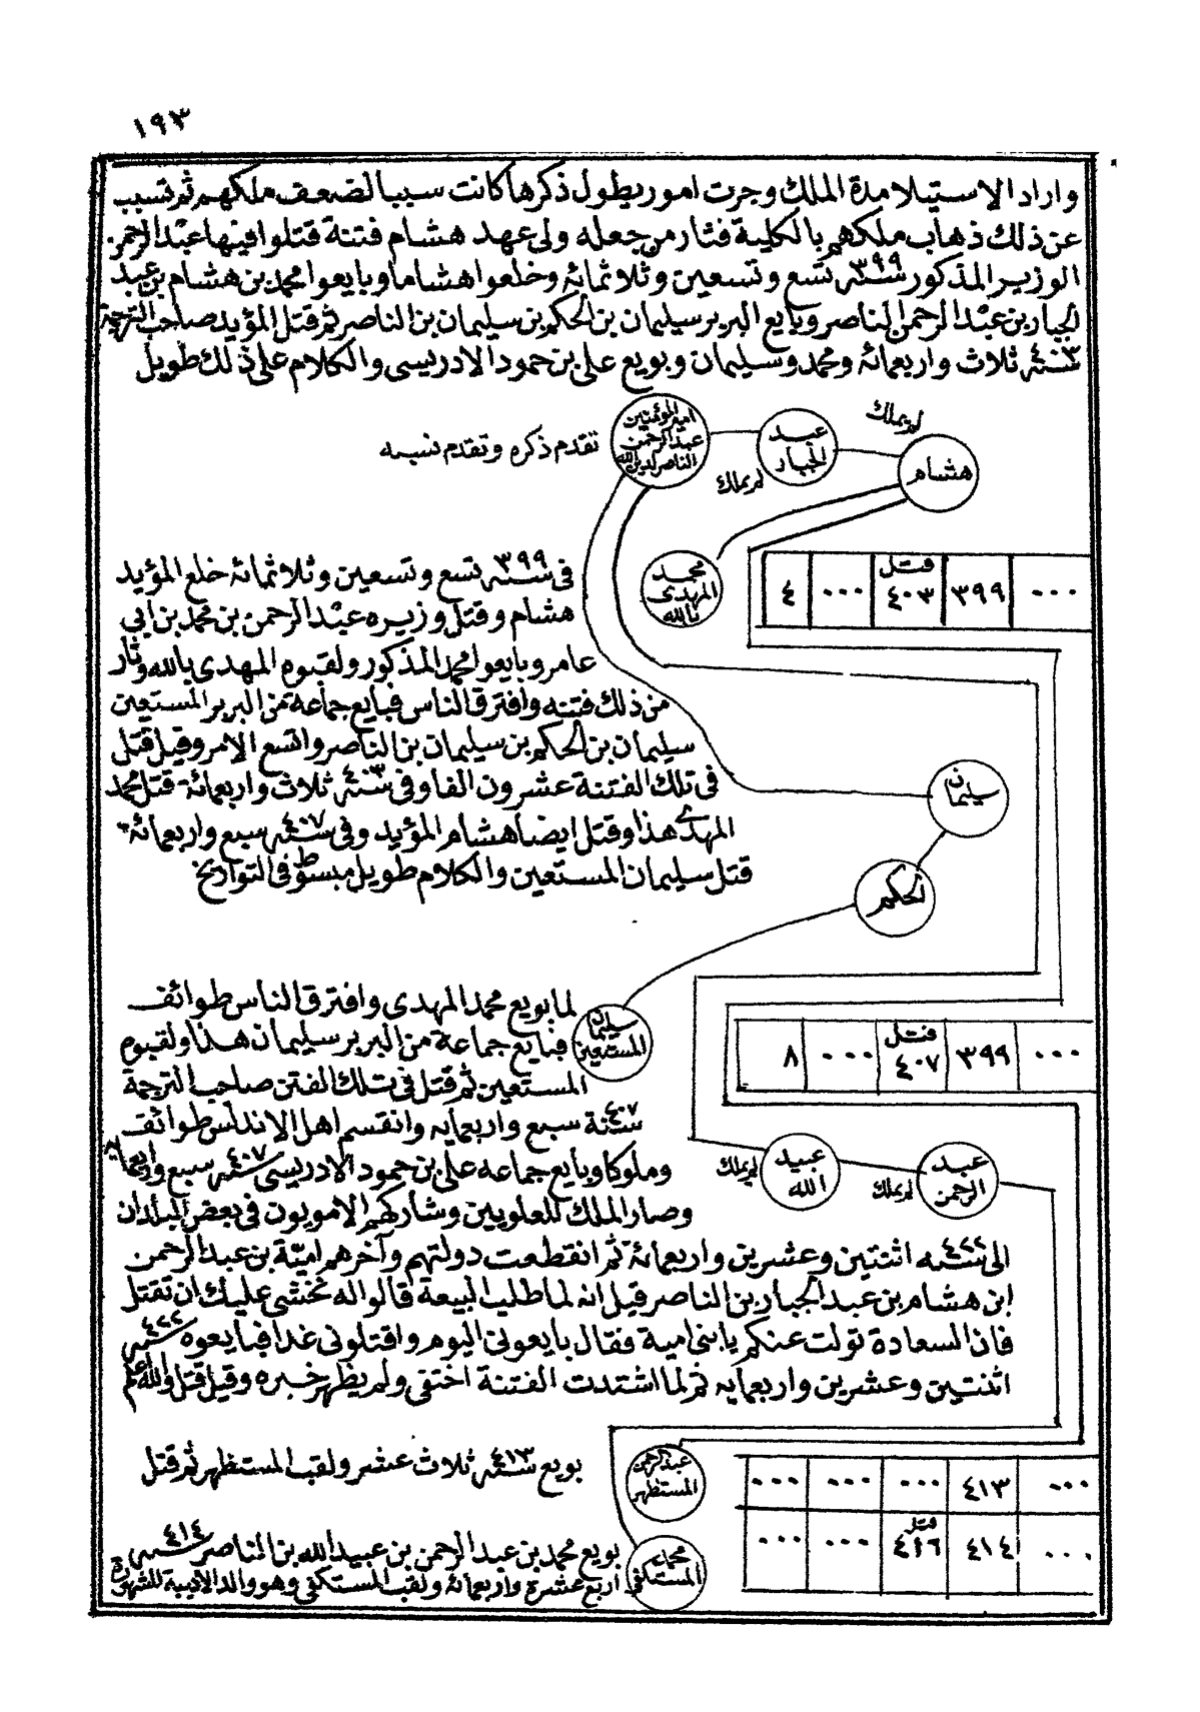 ١٩٣
واراد الاستيلا مدة الملك وجرت امور يطول ذكرها كانت سببا لضعف ملكهم ثم تسبب
عن ذلك ذهاب ملكهم بالكلية فثار من جعله ولى عهد هشام فتنة قتلوا فيها عبد الرحمن
الوزير المذكور سنة ٣٩٩ تسع وتسعين وثلاثمائة وخلعوا هشاما وبايعوا محمد بن هشام بن عبد
الجبار بن عبد الرحمن الناصر وبايع البربر سليمان بن الحكم بن سليمان بن الناصر ثم قتل المؤيد صاحب الترجمة
سنة ٤٠٣ ثلاث واربعمائة ومحمد وسليمان وبويع على بن حمود الادريسى والكلام على ذلك طويل
لم يملك
هشام
عبد الجبار
لم يملك
امير المؤمنين عبد الرحمن الناصر لدين الله
تقدم ذكره وتقدم نسبه
محمد المهدى بالله
... ٣٩٩ قتل ٤٠٣ ... ٤
فى سنة ٣٩٩ تسع وتسعين وثلاثمائة خلع المؤيد
هشام وقتل وزيره عبد الرحمن بن محمد بن ابى
عامر وبايعوا محمد المذكور ولقبوه المهدى بالله وثار
من ذلك فتنه وافترق الناس فبايع جماعة من البربر المستعين
سليمان بن الحكم بن سليمان بن الناصر واتسع الامر وقيل قتل
فى تلك الفتنة عشرون الفا وفى سنة ٤٠٣ ثلاث واربعمائة قتل محمد
المهدى هذا وقتل ايضا هشام المؤيد وفى سنة ٤٠٧ سبع واربعمائة
قتل سليمان المستعين والكلام طويل مبسوط فى التواريخ
سليمان
الحكم
سليمان المستعين
... ٣٩٩ قتل ٤٠٧ ... ٨
لما بويع محمد المهدى وافترق الناس طوائف
فبايع جماعة من البربر سليمان هذا ولقبوه
المستعين ثم قتل فى تلك الفتن صاحب الترجمة
سنة ٤٠٧ سبع واربعمايه وانقسم اهل الاندلس طوائف
وملوكا وبايع جماعه على بن حمود الادريسى سنة ٤٠٧ سبع واربعمايه
وصار الملك للعلويين وشاركهم الامويون فى بعض البلدان
الى سنه ٤٢٢ اثنتين وعشرين واربعمائة ثم انقطعت دولتهم وآخرهم اميّة بن عبد الرحمن
ابن هشام بن عبد الجبار بن الناصر قيل انه لما طلب البيعة قالوا له نخشى عليك ان تقتل
فان السعادة تولت عنكم يا بنى امية فقال بايعونى اليوم واقتلونى غدا فبايعوه سنة ٤٢٢
اثنتين وعشرين واربعمايه ثم لما اشتدت الفتنة اختفى ولم يظهر خبره وقيل قتل والله اعلم
عبد الرحمن
لم يملك
عبيد الله
لم يملك
عبد الرحمن المستظهر
... ٤١٣ ... ... ...
بويع سنة ٤١٣ ثلاث عشر ولقب المستظهر ثم قتل
محمد المستكفى
... ٤١٤ قتل ٤١٦ ... ...
بويع محمد بن عبد الرحمن بن عبيد الله بن الناصر سنة ٤١٤
اربع عشرة واربعمائة ولقب المستكفى وهو والد الاديبة المشهورة